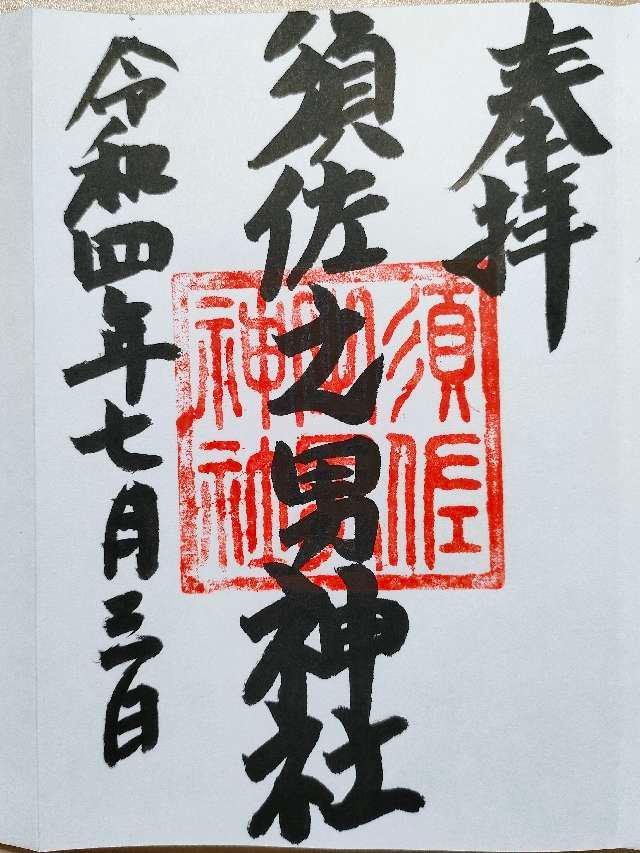 奉拝
須佐之男神社
令和四年七月三日
須佐
神社